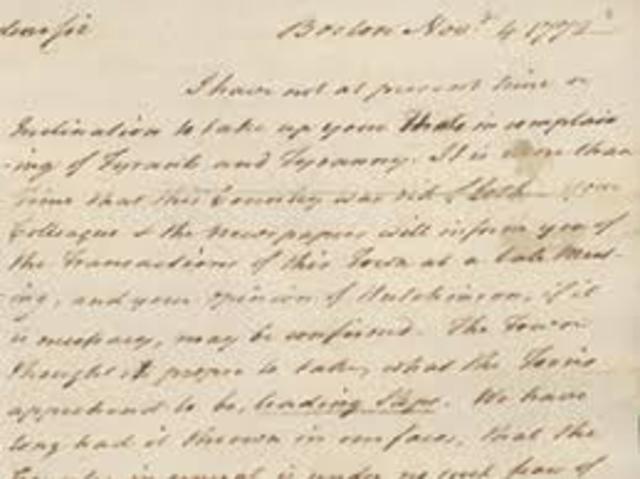 dear Sir Boston Novr 4 1772
I have not at present time or
Inclination to take up your time in complain
-ing of Tyrants and Tyranny. It is more than
time that this Country was rid of both your
Colleague & the newspapers will inform you of
the Transactions of this Town at a late Meet-
-ing, and your opinion of Hutchinson, if it
is necessary, may be confirmed. The Town
thought it proper to take, what the Tories
apprehend to be, leading Steps. We have
long had it thrown in our faces, that the
in general is under no such fear of